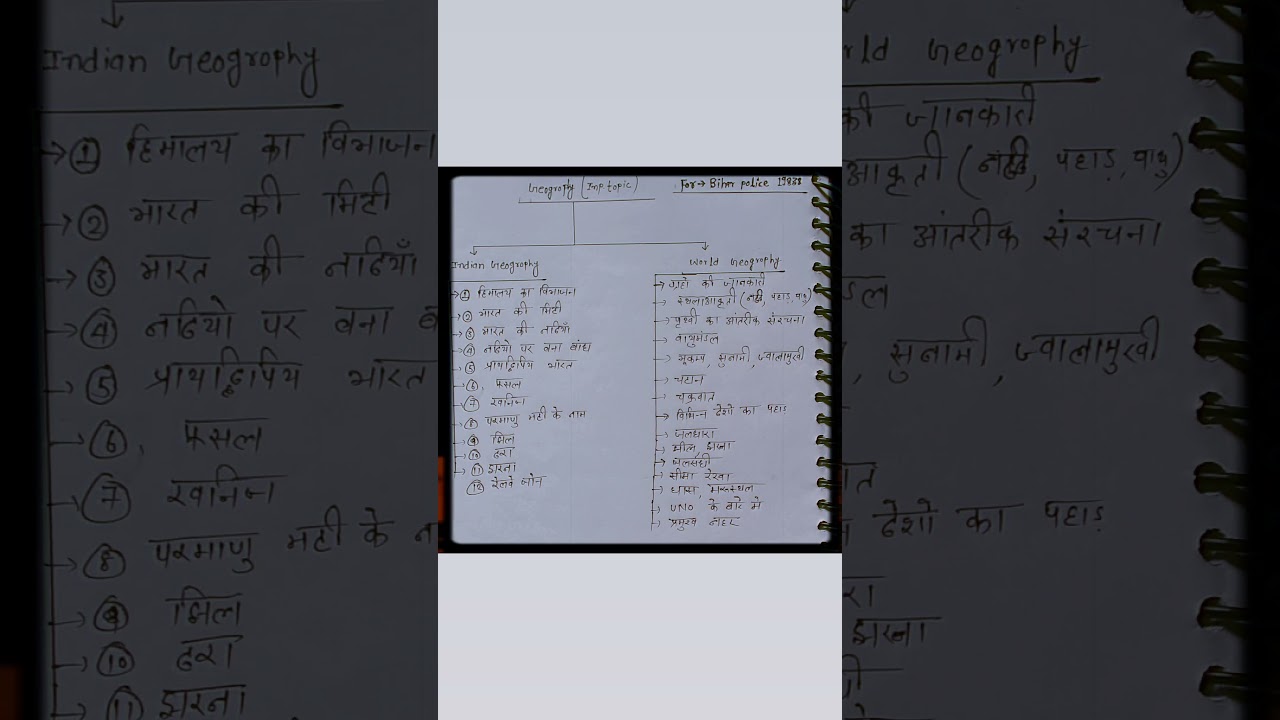 Geography (Imp topic)
For → Bihar police 19838
Indian Geography
→ ① हिमालय का विभाजन
→ ② भारत की मिटी
→ ③ भारत की नदियाँ
→ ④ नदियो पर बना बांध
→ ⑤ प्रायाद्विपिय भारत
→ ⑥, फसल
→ ⑦ खनिज
→ ⑧ परमाणु भटी के नाम
→ ⑨ झिल
→ ⑩ दर्रा
→ ⑪ झरना
⑫ रेलवे जोन
World Geography
→ ग्रहो की जानकारी
→ स्थलाआकृती (नदी, पहाड़, वायु)
→ पृथ्वी का आंतरीक संरचना
→ वायुमंडल
→ भूकम्प, सुनामी, ज्वालामुखी
→ चटान
→ चक्रवात
→ विभिन्न देशो का पहाड़
→ जलधारा
→ झील, झरना
→ जलसंधी
→ सीमा रेखा
→ घास, मरूस्थल
→ UNO के बारे मे
→ प्रमुख नहर